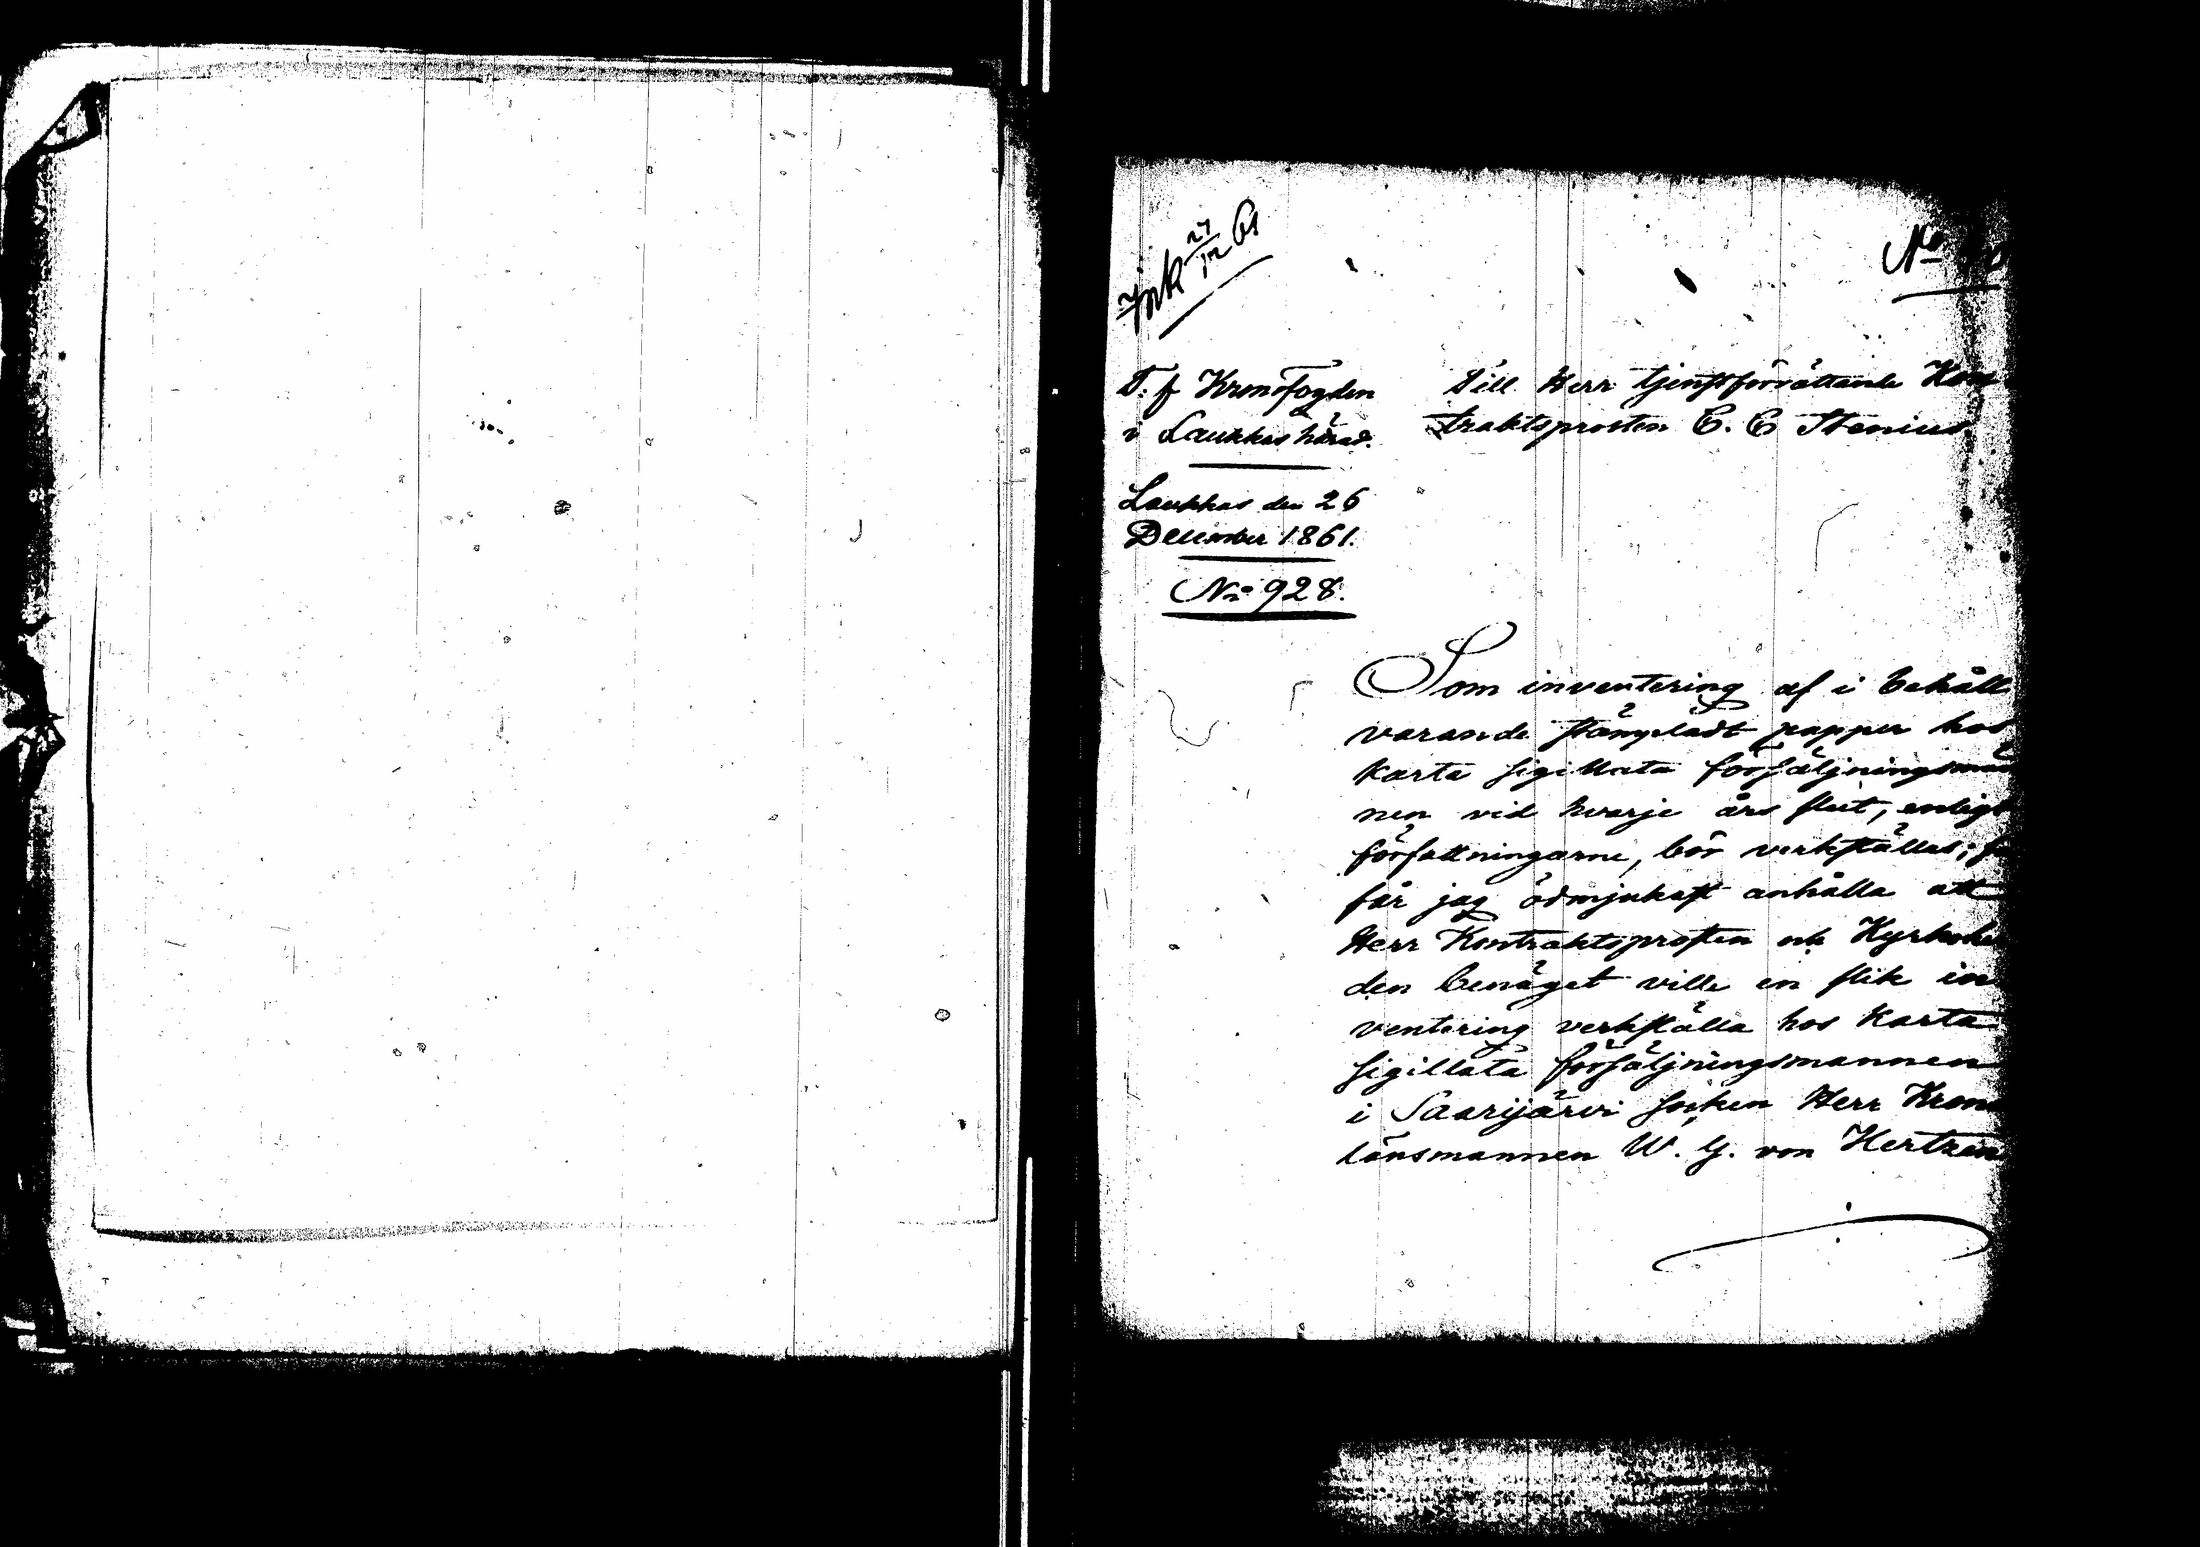 Ink 27/12 61
No
T. f Kronofogden
i Laukkas härad.
Laukkas den 26
December 1861.
No 928.
Till Herr tjenstförrättande Kon
traktsprosten C. C Stenius
Som inventering af i behåll
varande stämpladt papper hos
Karta sigillata försäljningsmän
nen vid hvarje års slut, enligt
författningarne, bör verkställas; så
får jag ödmjukast anhålla att
Herr Kontraktsprosten och Kyrkoher
den benäget ville en slik in
ventering verkställa hos Karta
sigillata försäljningsmannen
i Saarijärvi socken Herr Krono
länsmannen W. G. von Hertzen